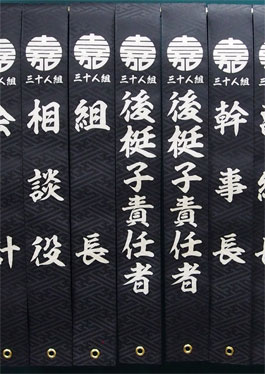 嘉
三十人組
幹事長
嘉
三十人組
後梃子責任者
嘉
三十人組
後梃子責任者
嘉
三十人組
組長
嘉
三十人組
相談役
三十人組
会計